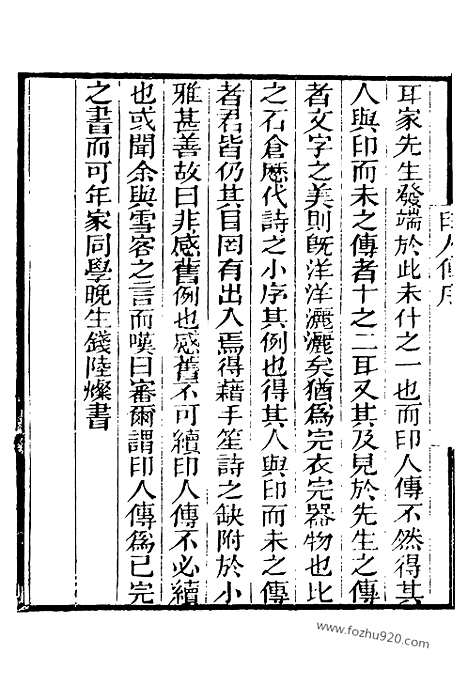 印人傳序
耳家先生發端於此未什之一也而印人傳不然得其
人與印而未之傳者十之二耳又其及見於先生之傳
者文字之美則旣洋洋灑灑矣猶爲完衣完器物也比
之石倉歷代詩之小序其例也得其人與印而未之傳
者君皆仍其目罔有出入焉得藉手笙詩之缺附於小
雅甚善故曰非感舊例也感舊不可續印人傳不必續
也或聞余與雪客之言而嘆曰審爾謂印人傳爲已完
之書而可年家同學晚生錢陸燦書
www.fozhu920.com